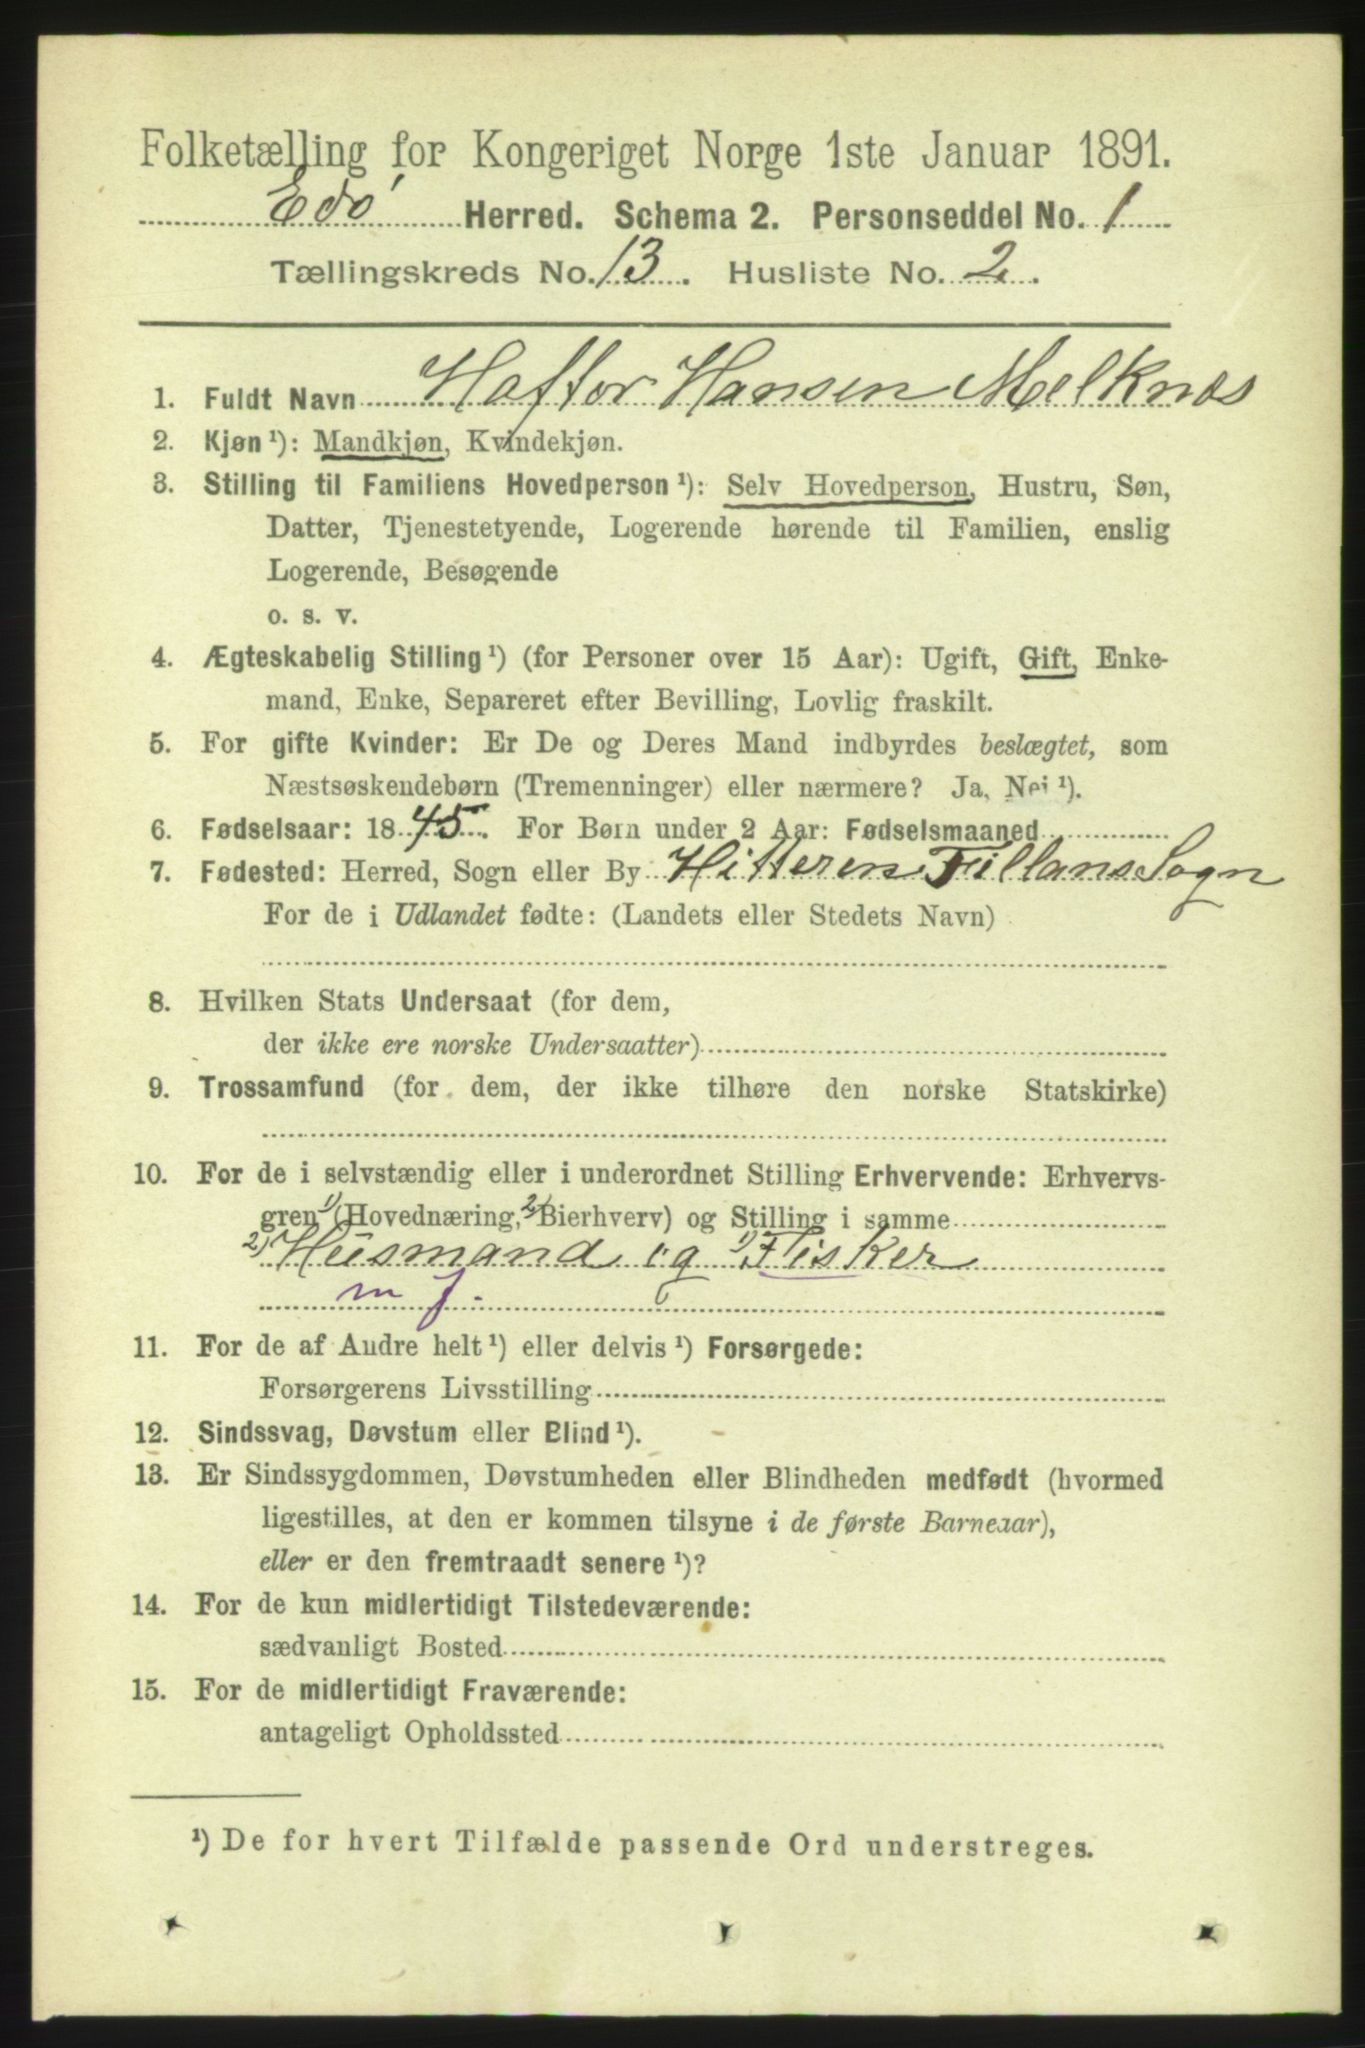 Folketælling for Kongeriget Norge 1ste Januar 1891.
Edø Herred. Schema 2. Personseddel No. 1
Tællingskreds No. 13. Husliste No. 2.
1. Fuldt Navn Haftor Hansen Melknæs
2. Kjøn ¹): Mandkjøn, Kvindekjøn.
3. Stilling til Familiens Hovedperson ¹): Selv Hovedperson, Hustru, Søn,
Datter, Tjenestetyende, Logerende hørende til Familien, enslig
Logerende, Besøgende
o. s. v.
4. Ægteskabelig Stilling ¹) (for Personer over 15 Aar): Ugift, Gift, Enke-
mand, Enke, Separeret efter Bevilling, Lovlig fraskilt.
5. For gifte Kvinder: Er De og Deres Mand indbyrdes beslægtet, som
Næstsøskendebørn (Tremenninger) eller nærmere? Ja, Nei ¹).
6. Fødselsaar: 1845. For Børn under 2 Aar: Fødselsmaaned
7. Fødested: Herred, Sogn eller By Hitteren Fillans Sogn
For de i Udlandet fødte: (Landets eller Stedets Navn)
8. Hvilken Stats Undersaat (for dem,
der ikke ere norske Undersaatter)
9. Trossamfund (for dem, der ikke tilhøre den norske Statskirke)
10. For de i selvstændig eller i underordnet Stilling Erhvervende: Erhvervs-
gren 1) (Hovednæring, 2) Bierhverv) og Stilling i samme
2) Husmand og 1) Fisker
m j.
11. For de af Andre helt ¹) eller delvis ¹) Forsørgede:
Forsørgerens Livsstilling
12. Sindssvag, Døvstum eller Blind ¹).
13. Er Sindssygdommen, Døvstumheden eller Blindheden medfødt (hvormed
ligestilles, at den er kommen tilsyne i de første Barneaar),
eller er den fremtraadt senere ¹)?
14. For de kun midlertidigt Tilstedeværende:
sædvanligt Bosted
15. For de midlertidigt Fraværende:
antageligt Opholdssted
¹) De for hvert Tilfælde passende Ord understreges.